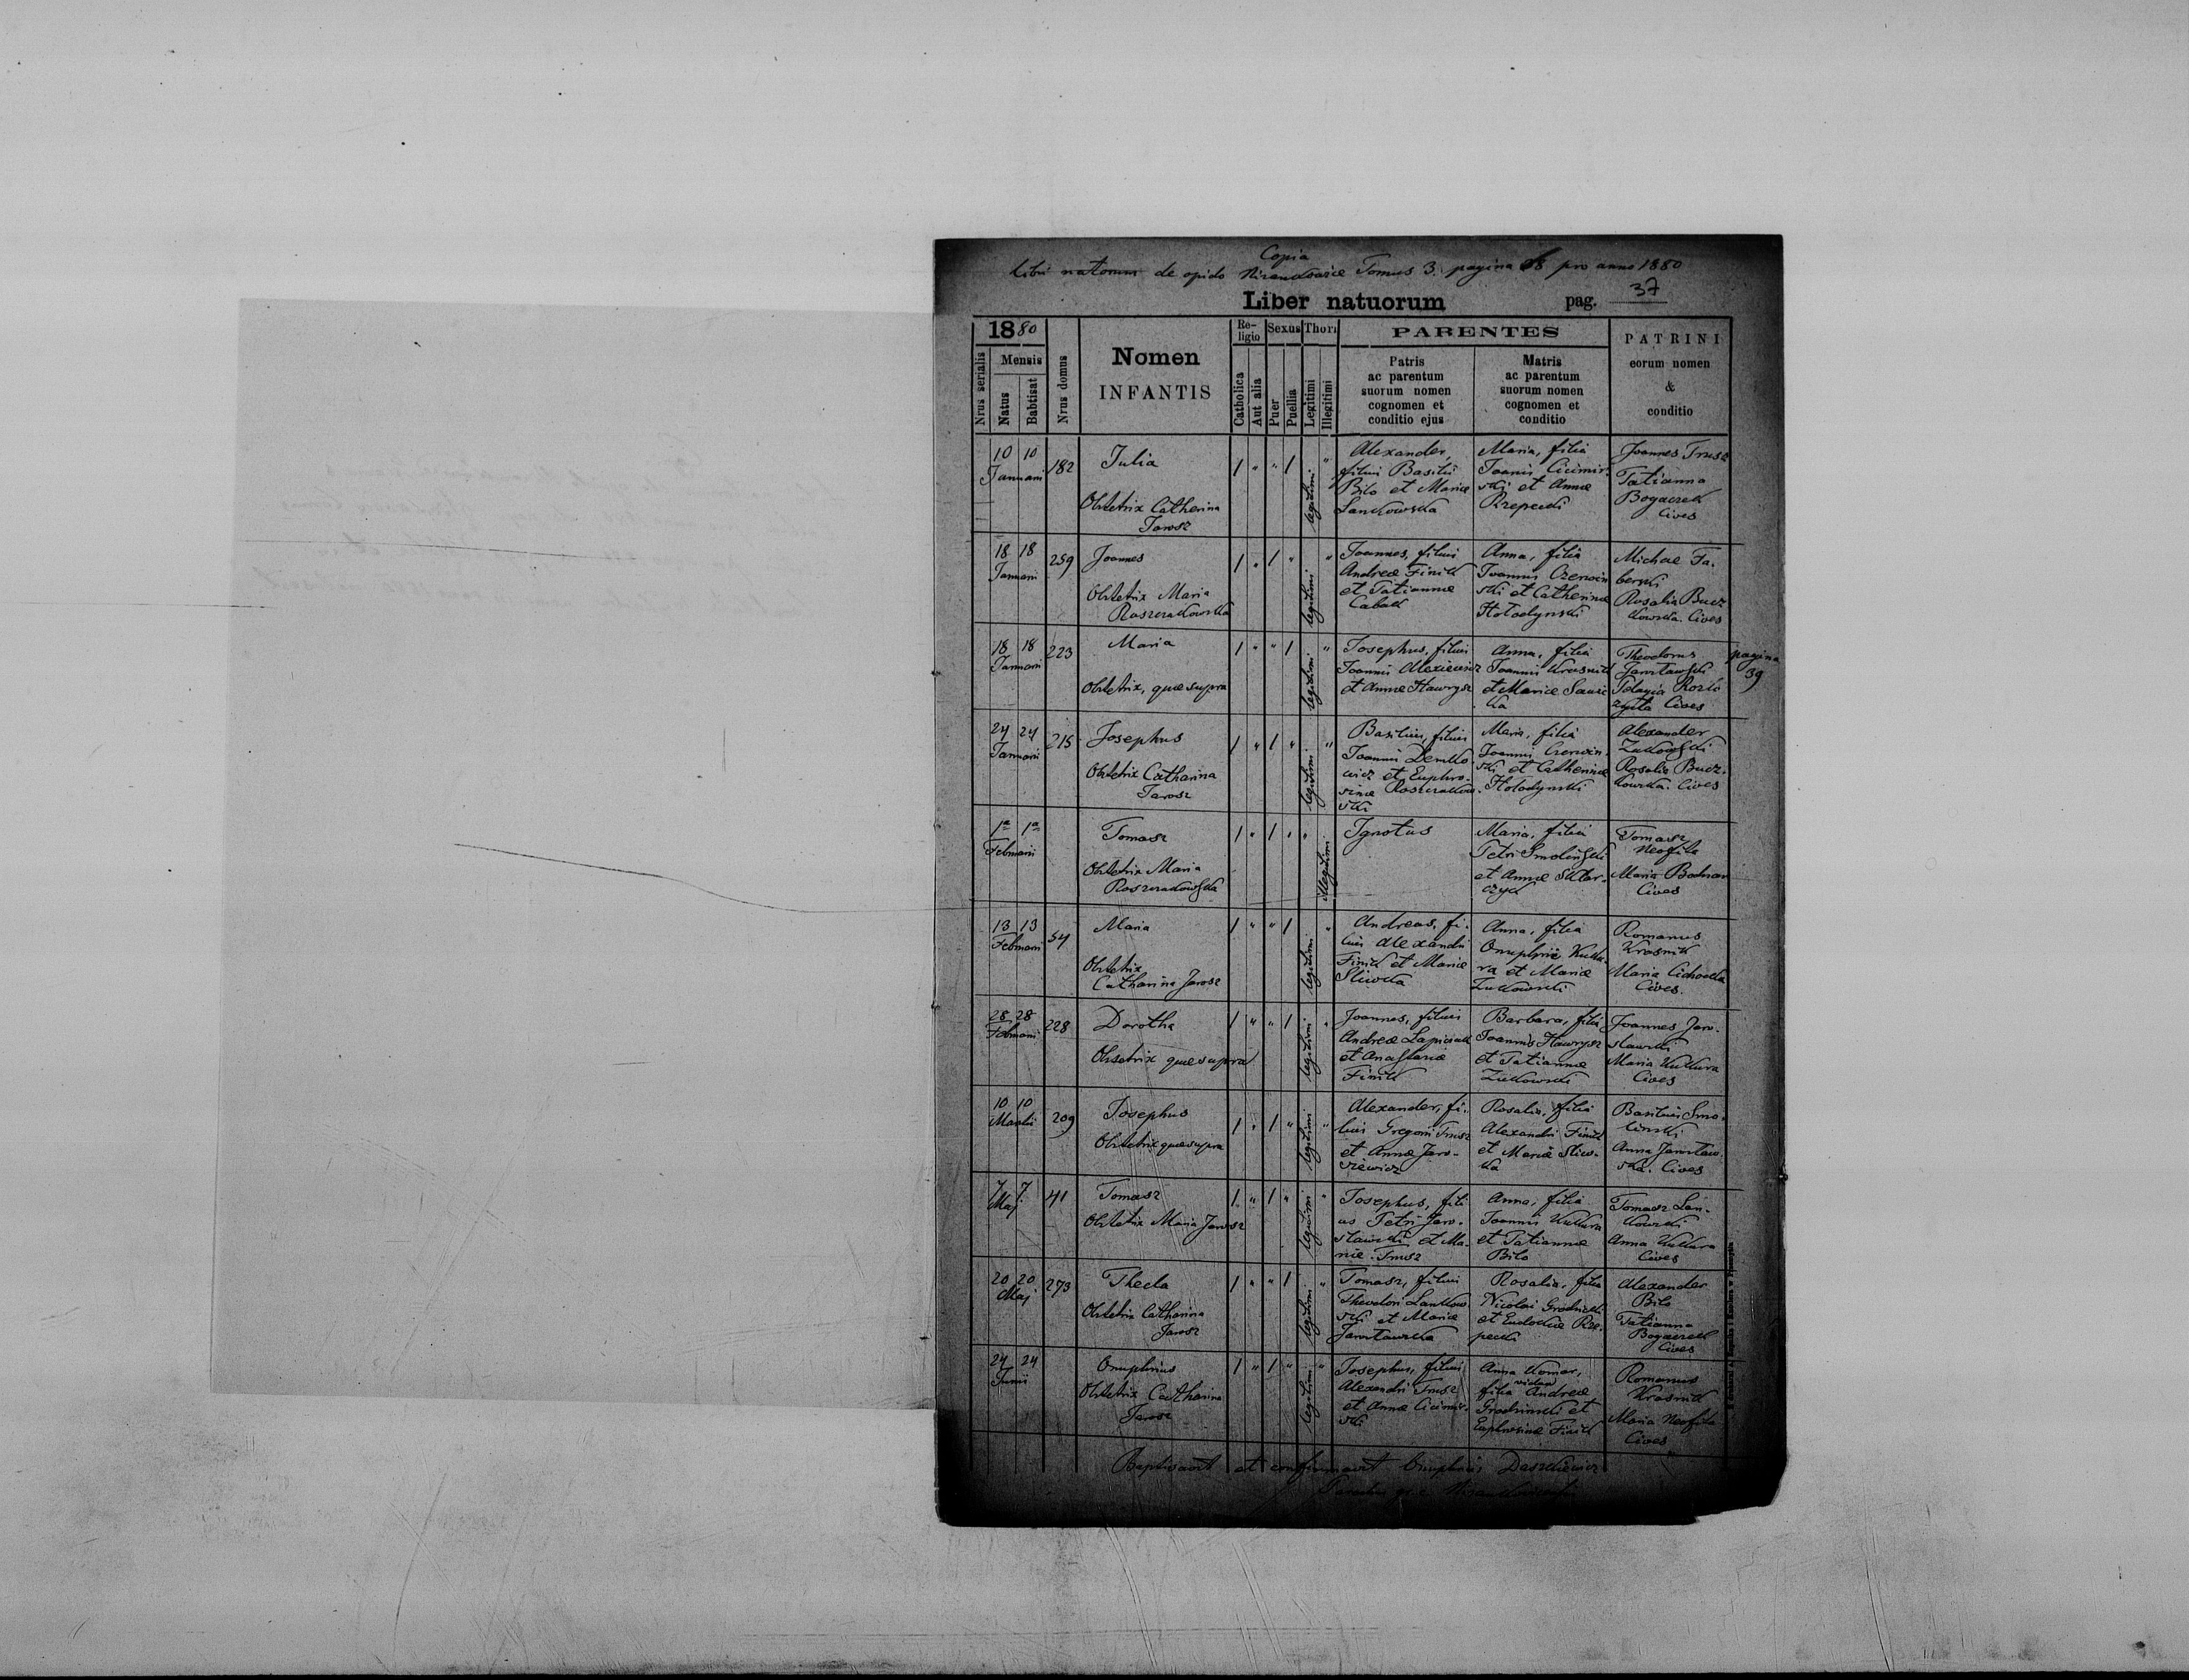 Copia
Libri natorum de opido Nizankowice Tomus 3. pagina 38 pro anno 1880
Liber natuorum pag. 37
1880
Nrus serialis
Mensis
Natus
Babtisat
Nrus domus
Nomen
INFANTIS
Religio
Catholica
Aut alia
Sexus
Puer
Puellia
Thori
Legitimi
Illegitimi
PARENTES
Patris
ac parentum
suorum nomen
cognomen et
conditio ejus
Matris
ac parentum
suorum nomen
cognomen et
conditio
PATRINI
eorum nomen
&
conditio
10 10
Januarii
182
Julia
Obstetrix Catherina
Jarosz
legitimi
Alexander,
filius Basilii
Bilo et Mariae
Lankowska
Maria, filia
Joannis Cicimir-
ski et Annae
Rzepecki
Joannes Trusz
Tatianna
Bogaczek
Cives
18 18
Januarii
259
Joannes
Obstetrix Maria
Roszczakowska
legitimi
Joannes, filius
Andreae Finik
et Tatiannae
Cabak
Anna, filia
Joannis Czerwin
ski et Catherinae
Hołodynski
Michae Fa-
berski
Rosalia Bucz
kowska. Cives
18 18
Januarii
223
Maria
Obstetrix, quae supra
legitimi
Josephus, filius
Joannis Alexiewicz
et Annae Hawrysz
Anna, filia
Joannis Krasnik
et Mariae Sawic
ka
Theodorus
Jarosławski
Pelagia
Cives
pagina
39
24 24
Januarii
215
Josephus
Obstetrix Catharina
Jarosz
legitimi
Basilius, filius
Joannis Demko
wicz et Euphro-
sinae Roszczakow-
ski
Maria, filia
Joannis Czerwin-
ski et Catherinae
Hołodynski
Alexander
Zukowski
Rosalia Bucz-
kowska. Cives
1a 1a
Februarii
Tomasz
Obstetrix Maria
Roszczakowska
illegitimi
Ignotus
Maria, filia
Petri Smolinski
et Annae Sklar-
czyk
Tomasz
Neofita
Maria Bodnar
Cives
13 13
Februarii
54
Maria
Obstetrix
Catharina Jarosz
legitimi
Andreas, fi-
lius Alexandri
Finik et Mariae
Sliwska
Anna, filia
Onuphrii Kuku-
ra et Mariae
Zukowski
Romanus
Krasnik
Maria Cichocka
Cives.
28 28
Februarii
228
Dorotha
Obsetrix quae supra
legitimi
Joannes, filius
Andreae Lapiciak
et Anastasiae
Finik
Barbara, filia
Joannis Hawrysz
et Tatiannae
Zukowski
Joannes Jaro-
slawski
Maria Kukura
Cives
10 10
Martii
209
Josephus
Obstetrix quae supra
legitimi
Alexander, fi-
lius Gregorii Trusz
et Annae Jaro-
szewicz
Rosalia, filia
Alexandri Finik
et Mariae Sliws-
ka
Basilius Smo-
linski
Anna Jarosław-
ska. Cives
7 7
Maj
41
Tomasz
Obstetrix Maria Jarosz
legitimi
Josephus, fili
us Petri Jaro-
slawski et Ma-
riae Trusz
Anna, filia
Joannis Kukura
et Tatiannae
Bilo
Tomasz Lan-
kowski
Anna Kukura
Cives
20 20
Maj
273
Thecla
Obstetrix Catharina
Jarosz
legitimi
Tomasz, filius
Theodori Lankow
ski et Mariae
Jarosławska
Rosalia, filia
Nicolai Grodnicki
et Eudochiae Rze-
pecki
Alexander
Bilo
Tatianna
Bogaczek
Cives
24 24
Junii
Onuphrius
Obstetrix Catharina
Jarosz
legitimi
Josephus, filius
Alexandri Trusz
et Annae Cicimir-
ski
Anna Komar,
vidua
filia Andreae
et
Euphrosinae Finik
Romanus
Krasnik
Maria Neofita
Cives
Baptisavit et confirmavit Onuphrius Daszkiewicz